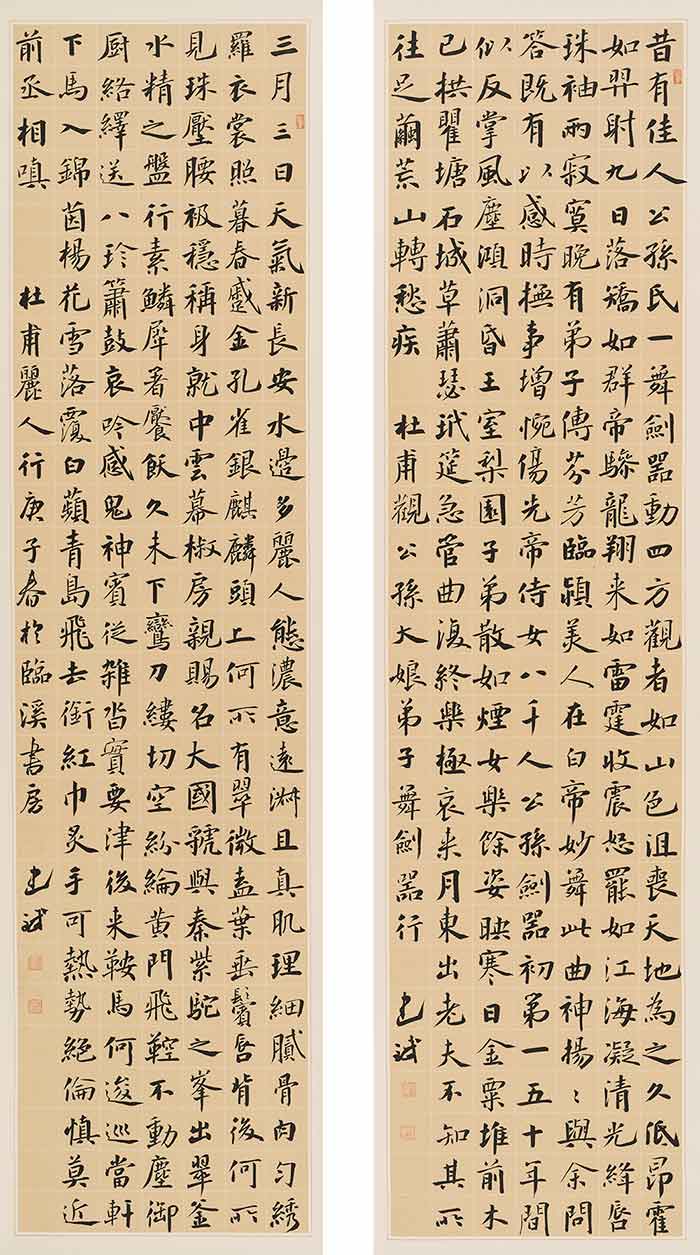 昔有佳人公孫氏一舞劍器動四方觀者如山色沮喪天地為之久低昂霍
如羿射九日落矯如群帝驂龍翔来如雷霆收震怒罷如江海凝清光絳唇
珠袖兩寂寞晚有弟子傳芬芳臨潁美人在白帝妙舞此曲神揚〻與余問
答既有以感時撫事增惋傷先帝侍女八千人公孫劍器初第一五十年間
似反掌風塵澒洞昏王室梨園子弟散如煙女樂餘姿映寒日金粟堆前木
已拱瞿塘石城草蕭瑟玳筵急管曲復終樂極哀来月東出老夫不知其所
往足繭荒山轉愁疾 杜甫觀公孫大娘弟子舞劍器行
三月三日天氣新長安水邊多麗人態濃意遠淑且真肌理細膩骨肉勻綉
羅衣裳照暮春蹙金孔雀銀麒麟頭上何所有翠微盍葉垂鬢唇背後何所
見珠壓腰衱穩稱身就中雲幕椒房親賜名大國虢與秦紫駝之峯出翠釜
水精之盤行素鱗犀箸饜飫久未下鸞刀縷切空紛綸黄門飛鞚不動塵御
厨絡繹送八珍簫鼓哀吟感鬼神賓從雜沓實要津後来鞍馬何逡巡當軒
下馬入錦茵楊花雪落覆白蘋青鳥飛去銜紅巾炙手可熱勢絕倫慎莫近
前丞相嗔 杜甫麗人行庚子春於臨溪書房